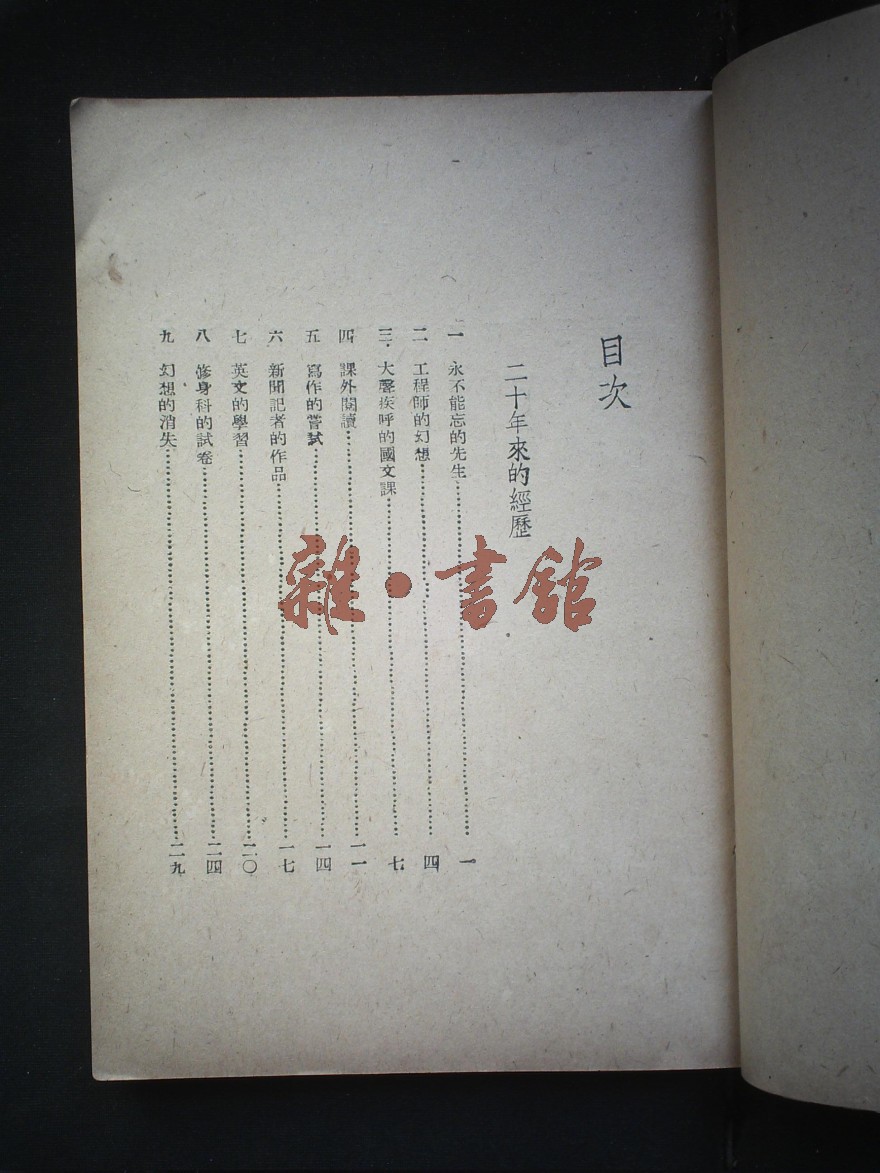 目次
二十年來的經歷
一 永不能忘的先生………一
二 工程師的幻想………四
三 大聲疾呼的國文課………七
四 課外閱讀………一一
五 寫作的嘗試………一四
六 新聞記者的作品………一七
七 英文的學習………二〇
八 修身科的試卷………二四
九 幻想的消失………二九
雜·書館